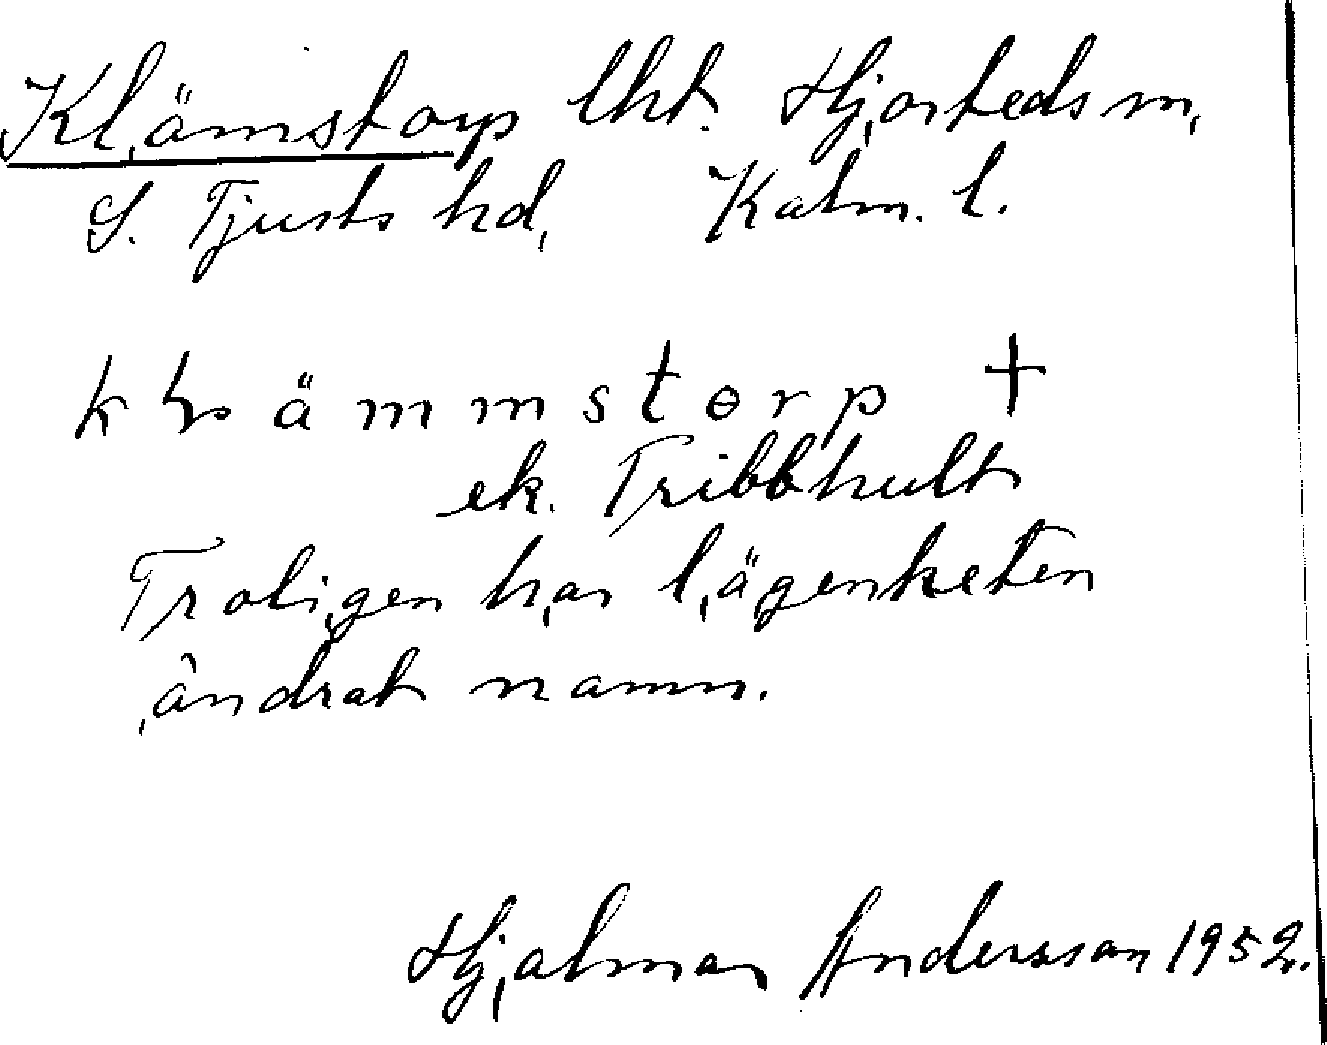 Klämstorp lht. Hjorteds sn,
S. Tjusts hd, Kalm. l.
klämmstɵrp +
ek. Tribbhult
Troligen har lägenheten
ändrat namn.
Hjalmar Andersson 1952.